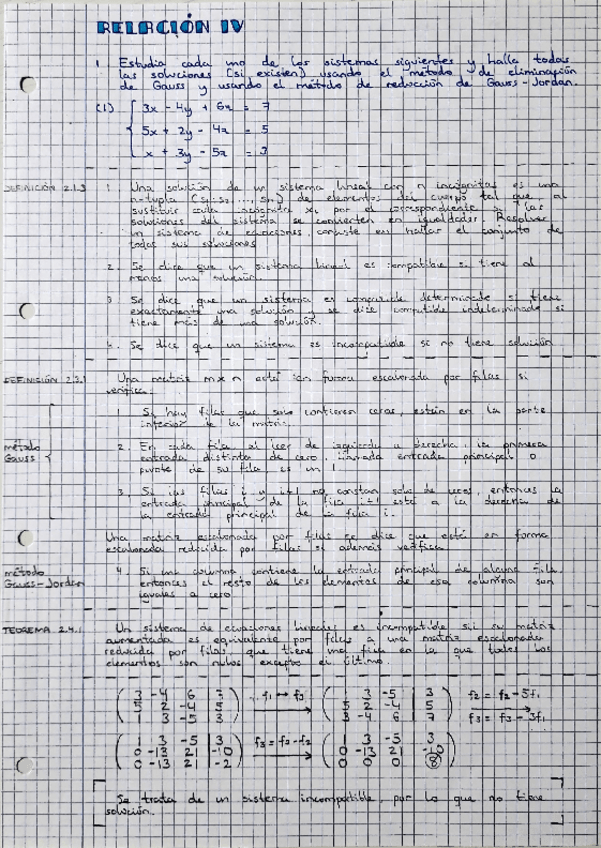 RELACIÓN IV
1 Estudia cada uno de los sistemas siguientes y halla todas
las soluciones (si existen) usando el método de eliminación
de Gauss y usando el método de reducción de Gauss-Jordan.
(1) { 3x - 4y + 6z = 7
5x + 2y - 4z = 5
x + 3y - 5z = 3
DEFINICIÓN 2.1.3 1. Una solución de un sistema lineal con n incógnitas es una
n-tupla (s1, s2, ..., sn) de elementos del cuerpo tal que al
sustituir cada incógnita xi por el correspondiente si las
soluciones del sistema se convierten en igualdades. Resolver
un sistema de ecuaciones consiste en hallar el conjunto de
todas sus soluciones
2. Se dice que un sistema lineal es compatible si tiene al
menos una solución.
3 Se dice que un sistema es compatible determinado si tiene
exactamente una solución y se dice compatible indeterminado si
tiene más de una solución.
4. Se dice que un sistema es incompatible si no tiene solución
DEFINICIÓN 2.3.1 Una matriz m×n está en forma escalonada por filas si
verifica:
1 Si hay filas que solo contienen ceros, están en la parte
inferior de la matriz.
método
Gauss {
2. En cada fila al leer de izquierda a derecha, la primera
entrada distinta de cero, llamada entrada principal o
pivote de su fila, es un 1
3. Si las filas i y i+1 no constan solo de ceros, entonces la
entrada principal de la fila i+1 está a la derecha de
la entrada principal de la fila i.
Una matriz escalonada por filas se dice que está en forma
escalonada reducida por filas si además verifica
método
Gauss-Jordan
4 Si una columna contiene la entrada principal de alguna fila,
entonces el resto de los elementos de esa columna son
iguales a cero
TEOREMA 2.4.1 Un sistema de ecuaciones lineales es incompatible sii su matriz
aumentada es equivalente por filas a una matriz escalonada
reducida por filas que tiene una fila en la que todos los
elementos son nulos excepto el último.
( 3 -4 6 | 7 ) f1 ↔ f3 ( 1 3 -5 | 3 ) f2 = f2 - 5f1
( 5 2 -4 | 5 ) → ( 5 2 -4 | 5 ) →
( 1 3 -5 | 3 ) ( 3 -4 6 | 7 ) f3 = f3 - 3f1
( 1 3 -5 | 3 ) f3 = f3 - f2 ( 1 3 -5 | 3 )
( 0 -13 21 | -10 ) → ( 0 -13 21 | -10 )
( 0 -13 21 | -2 ) ( 0 0 0 | 8 )
Se trata de un sistema incompatible, por lo que no tiene
solución.